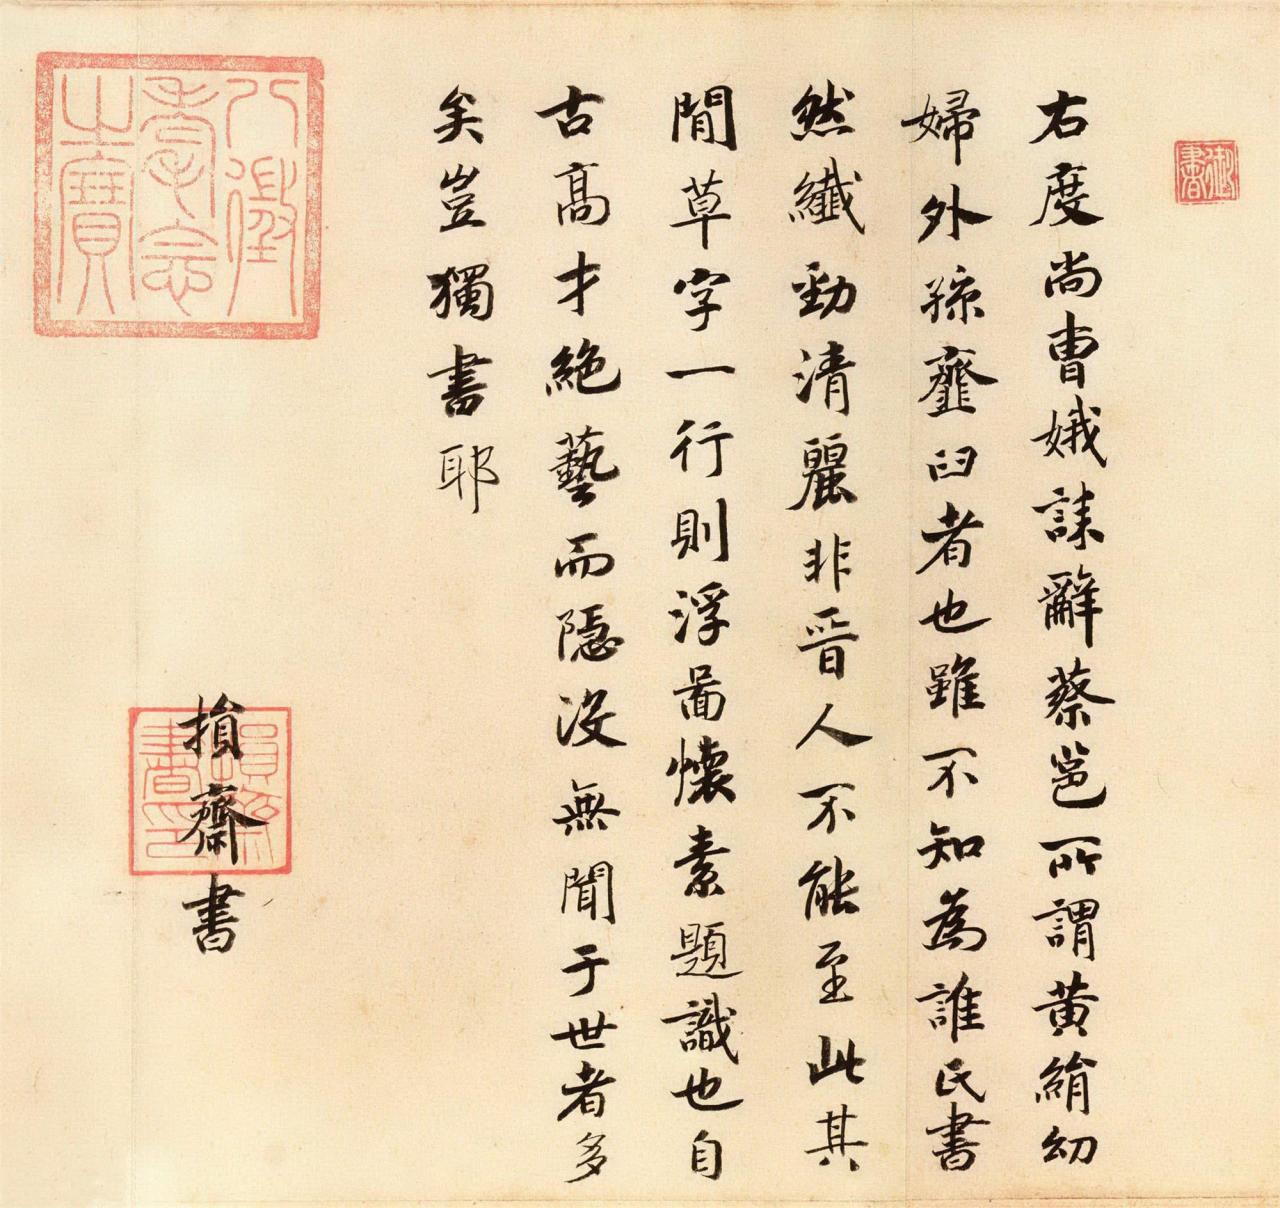 御書
右度尚曹娥誄辭蔡邕所謂黃絹幼
婦外孫虀臼者也雖不知為誰氏書
然纖勁清麗非晉人不能至此其
間草字一行則浮圖懷素題識也自
古高才絕藝而隱沒無聞于世者多
矣豈獨書耶
損齋書
損齋書印
八徵耄念之寶